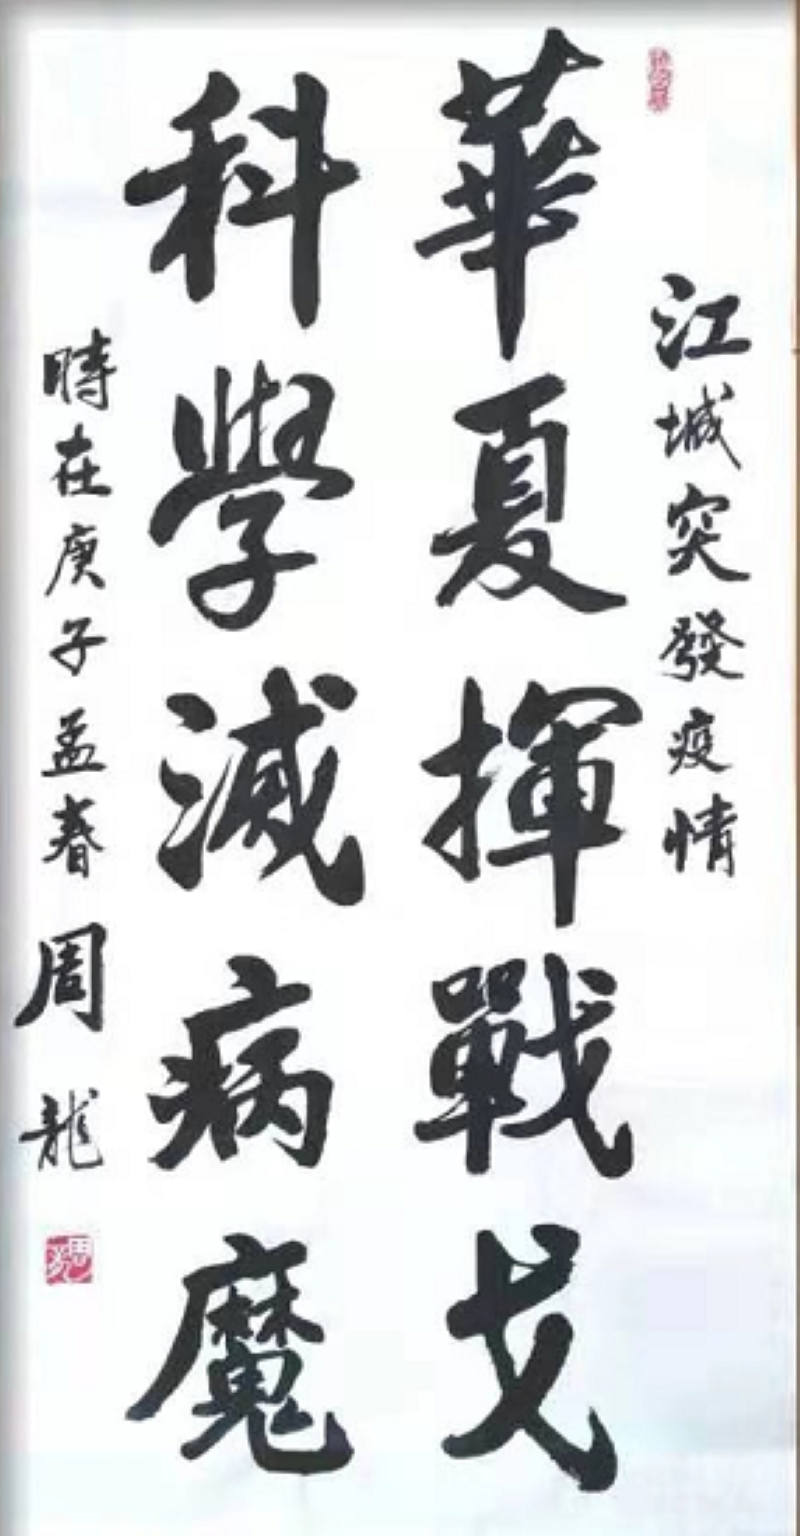 江城突發疫情
華夏揮戰戈
科學滅病魔
時在庚子孟春 周龍